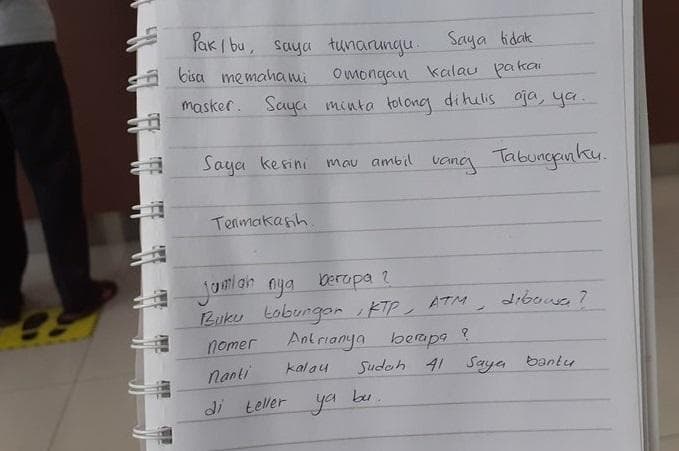 Pak/bu, saya tunarungu. Saya tidak
bisa memahami omongan kalau pakai
masker. Saya minta tolong ditulis aja, ya.
Saya kesini mau ambil uang Tabunganku.
Terimakasih.
jumlah nya berapa?
Buku tabungan, KTP, ATM, dibawa?
nomer Antrianya berapa?
nanti kalau sudah 41 saya bantu
di teller ya bu.